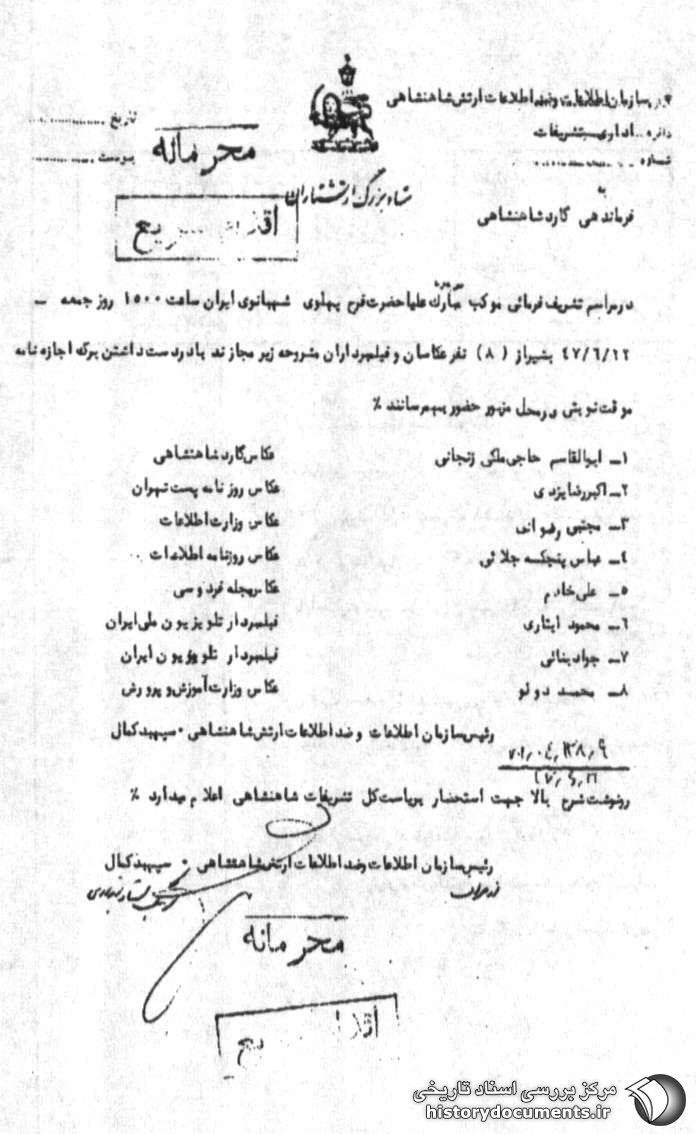 سازمان اطلاعات و ضد اطلاعات ارتش شاهنشاهی
دائره اداری تشریفات
شماره
تاریخ
پیوست
محرمانه
ستاد بزرگ ارتشتاران
به
فرماندهی گارد شاهنشاهی
در مراسم تشریف فرمائی موکب مبارک علیاحضرت فرح پهلوی شهبانوی ایران ساعت ۱۵۰۰ روز جمعه –
۴۷/۶/۲۲ بشیراز (۸) نفر عکاسان و فیلمبرداران مشروحه زیر مجازند با در دست داشتن برگ اجازه نامه
موقت نوبتی در محل مزبور حضور بهمرسانند ٪
۱– ابوالقاسم حاجی ملکی زنجانی عکاس گارد شاهنشاهی
۲– اکبر رضا یزدی عکاس روزنامه پست تهران
۳– مجتبی عکاس وزارت اطلاعات
۴– عباس پنجکسه جلائی عکاس روزنامه اطلاعات
۵– علی خادم عکاس مجله فردوسی
۶– محمود ایثاری فیلمبردار تلویزیون ملی ایران
۷– جواد بنائی فیلمبردار تلویزیون ایران
۸– محمد دولو عکاس وزارت آموزش و پرورش
رئیس سازمان اطلاعات و ضد اطلاعات ارتش شاهنشاهی . سپهبد کمال
رونوشت شرح بالا جهت استحضار بریاست کل تشریفات شاهنشاهی اعلام میدارد ٪
رئیس سازمان اطلاعات و ضد اطلاعات ارتش شاهنشاهی . سپهبد کمال
محرمانه
مرکز بررسی اسناد تاریخی
historydocuments.ir